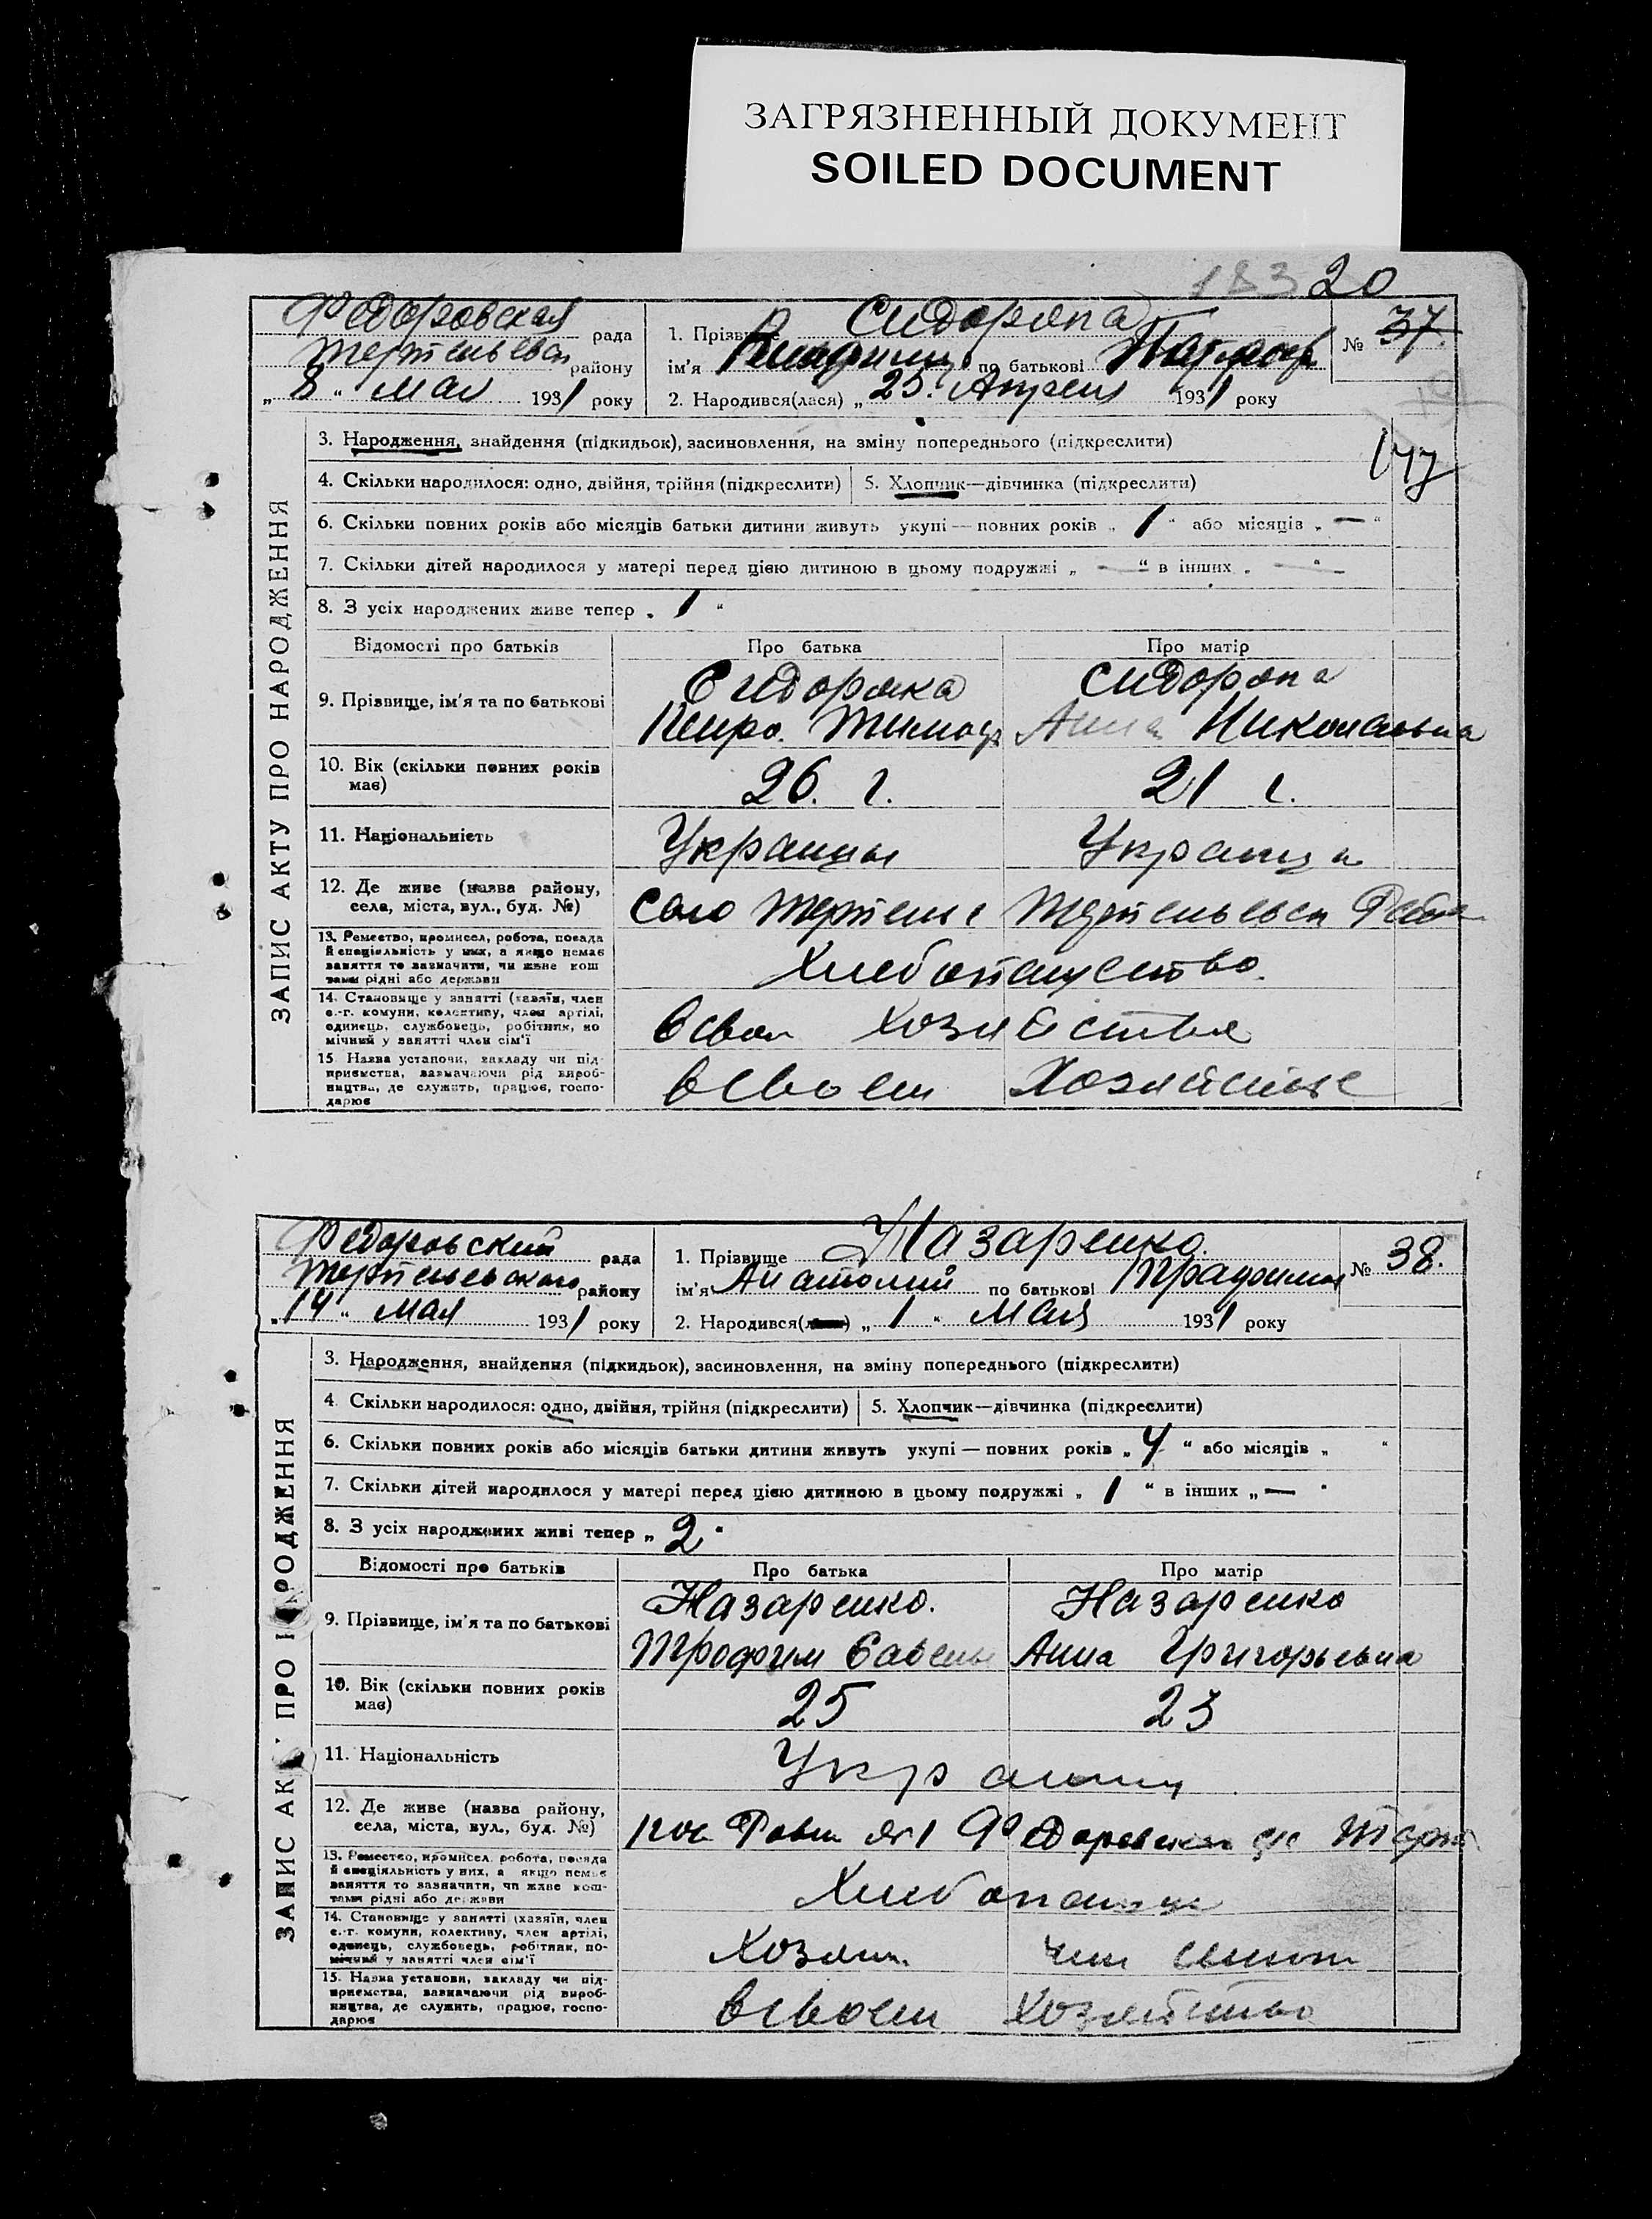 ЗАГРЯЗНЕННЫЙ ДОКУМЕНТ
SOILED DOCUMENT
183 20
ЗАПИС АКТУ ПРО НАРОДЖЕННЯ
Федоровская рада
району
„ 8 “ Мая 1931 року
1. Прізвище Сидоряка
ім'я по батькові
2. Народився(лася) „ 25. Апреля 1931 року
№ 37.
3. Народження, знайдення (підкидьок), засиновлення, на зміну попереднього (підкреслити)
147
4. Скільки народилося: одно, двійня, трійня (підкреслити)
5. Хлопчик—дівчинка (підкреслити)
6. Скільки повних років або місяців батьки дитини живуть укупі — повних років „ 1 “ або місяців „ — “
7. Скільки дітей народилося у матері перед цією дитиною в цьому подружжі „ — “ в інших „ — “
8. З усіх народжених живе тепер „ 1 “
Відомості про батьків Про батька Про матір
9. Прізвище, ім'я та по батькові
Сидоряка Сидоряка
Петро Анна Николаевна
10. Вік (скільки повних років має)
26. г. 21 г.
11. Національність
Украинец Украинка
12. Де живе (назва району, села, міста, вул., буд. №)
Село
13. Ремество, промисел, робота, посада й спеціяльність у них, а якщо немає заняття то зазначити, чи живе коштами рідні або держави
Хлебопашество.
14. Становище у занятті (хазяїн, член с.-г. комуни, колективу, член артілі, одинець, службовець, робітник, помічний у занятті член сім'ї
В своем хозяйстве
15. Назва установи, закладу чи підприємства, зазначаючи рід виробництва, де служить, працює, господарює
В своем Хозяйстве
ЗАПИС АК ПРО Н РОДЖЕННЯ
Федоровский рада
району
„ 14 “ мая 1931 року
1. Прізвище Назаренко.
ім'я Анатолий по батькові
2. Народився( ) „ 1 “ Мая 1931 року
№ 38.
3. Народження, знайдення (підкидьок), засиновлення, на зміну попереднього (підкреслити)
4. Скільки народилося: одно, двійня, трійня (підкреслити)
5. Хлопчик—дівчинка (підкреслити)
6. Скільки повних років або місяців батьки дитини живуть укупі — повних років „ 4 “ або місяців „ “
7. Скільки дітей народилося у матері перед цією дитиною в цьому подружжі „ 1 “ в інших „ — “
8. З усіх народжених живі тепер „ 2 “
Відомості про батьків Про батька Про матір
9. Прізвище, ім'я та по батькові
Назаренко. Назаренко
Трофим Анна Григорьевна
10. Вік (скільки повних років має)
25 23
11. Національність
12. Де живе (назва району, села, міста, вул., буд. №)
13. Ремество, промисел, робота, посада й спеціяльність у них, а якщо немає заняття то зазначити, чи живе коштами рідні або держави
14. Становище у занятті (хазяїн, член с.-г. комуни, колективу, член артілі, одинець, службовець, робітник, помічний у занятті член сім'ї
Хозяин. член семьи
15. Назва установи, закладу чи підприємства, зазначаючи рід виробництва, де служить, працює, господарює
В своем Хозяйство